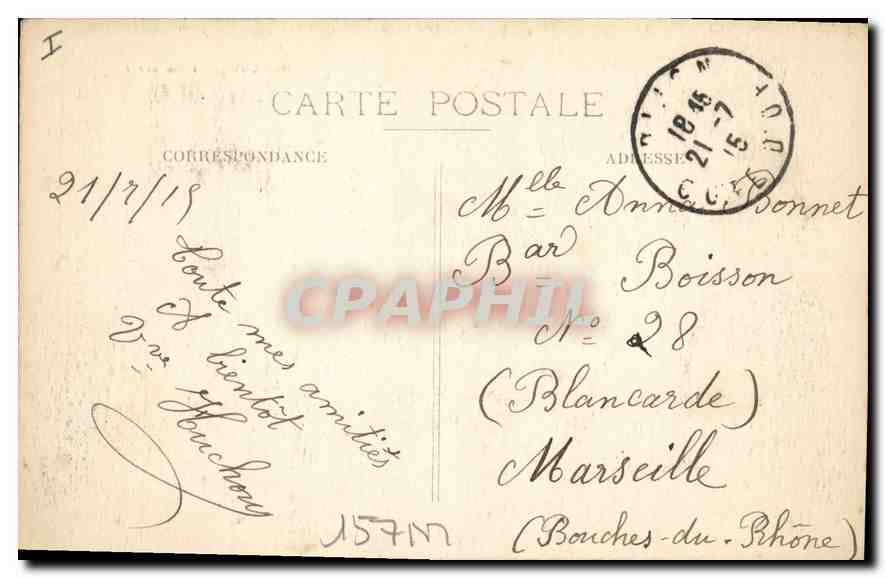 I
CARTE POSTALE
CORRESPONDANCE
ADRESSE
18 45
21 -7
15
21/7/15
Toute mes amitiés
A bientôt
Vve Huchon
Mlle Anna Bonnet
Bar Boisson
No 28
(Blancarde)
Marseille
(Bouches-du-Rhône)
CPAPHIL
157M